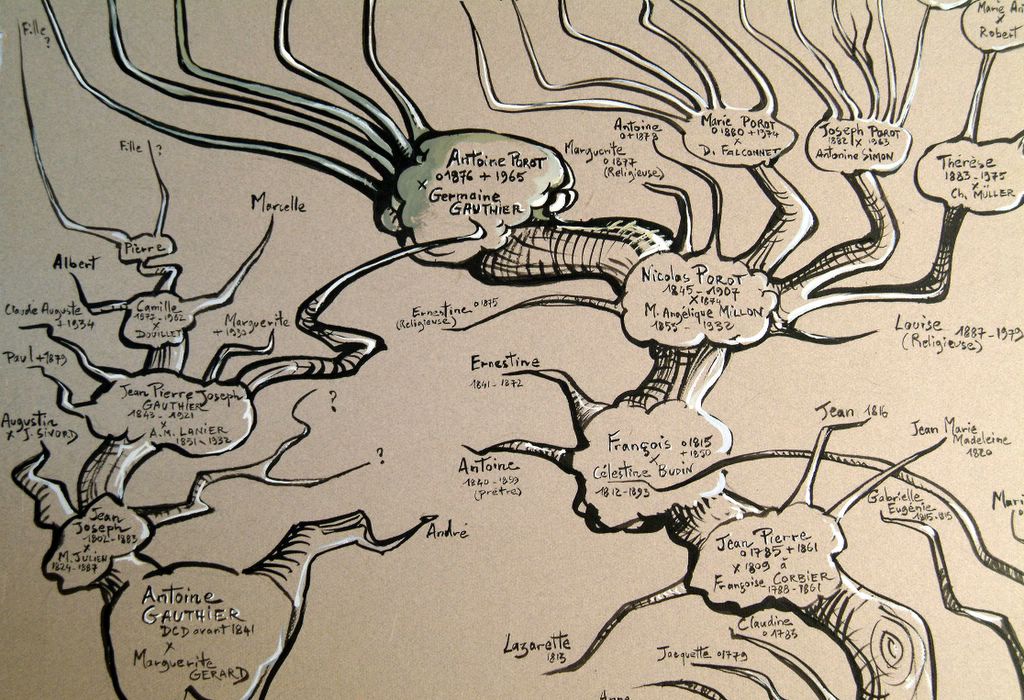 Fille
?
Marie
x
Robert
Fille ?
Antoine
Marguerite
o 1877
(Religieuse)
Marie POROT
o 1880 + 1974
x
D. FALCONNET
Joseph POROT
1882 x 1963
Antonine SIMON
Antoine POROT
o 1876 + 1965
x
Germaine
GAUTHIER
Thérèse
1883-1975
x
Ch. MÜLLER
Marcelle
Pierre
Albert
Nicolas POROT
1845-1907
x 1874
M. Angélique MILLON
1855-1932
Claude Auguste
+ 1934
Camille
x
DOUILLET
Marguerite
Ernestine o 1875
(Religieuse)
Louise 1887-1979
(Religieuse)
Paul + 1879
Ernestine
1841-1872
Jean Pierre Joseph
GAUTHIER
1843-1921
x
A.M. LANIER
1851-1932
?
Augustin
x J. SIVORD
Jean 1816
Jean Marie
Madeleine
1820
François o 1815
x + 1850
Célestine BUDIN
1812-1893
?
Antoine
1840-1899
(prêtre)
Gabrielle
Eugénie
1815-1815
Jean
Joseph
1802-1883
x
M. JULIEN
1824-1887
André
Jean Pierre
o 1785 + 1861
x 1809 à
Françoise CORBIER
1788-1861
Antoine
GAUTHIER
DCD avant 1841
x
Marguerite
GERARD
Claudine
o 1783
Lazarette
1813
Jacquette o 1779
Anne